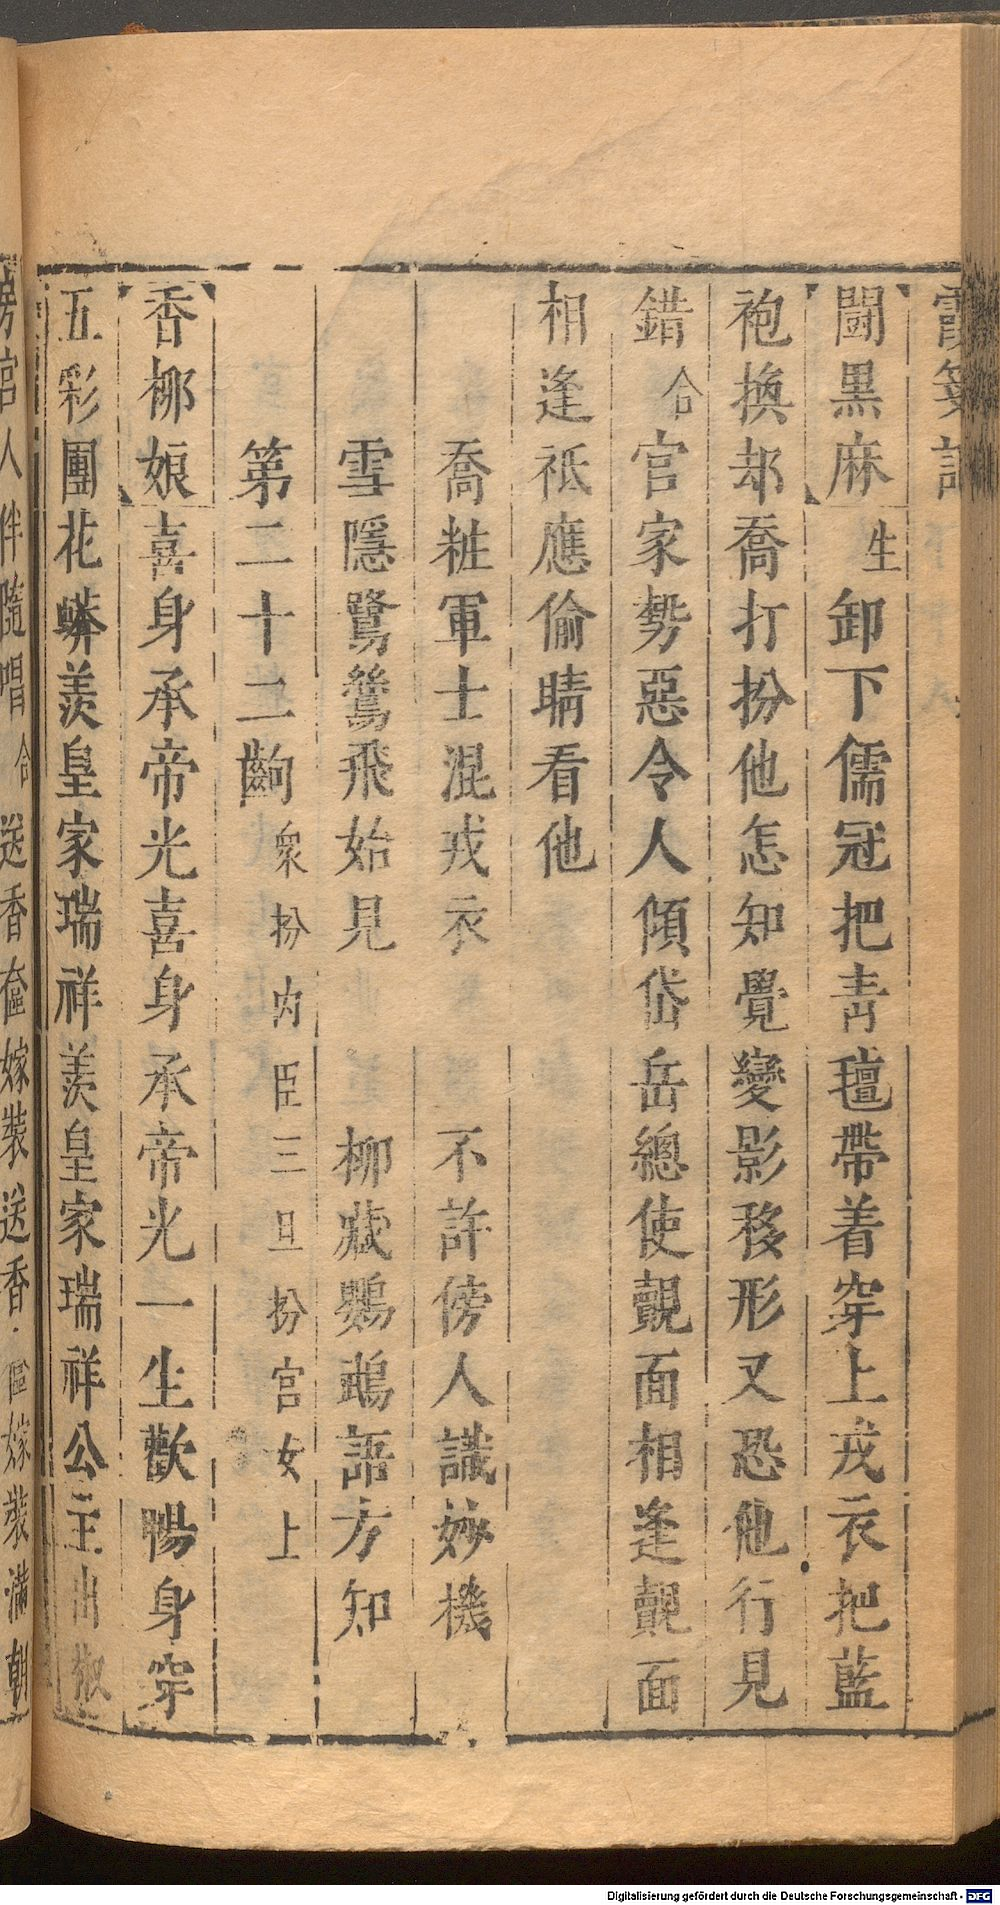 霞箋記
鬧黑麻 生 卸下儒冠把青氊帶着穿上戎衣把藍
袍換却喬打扮他怎知覺變影移形又恐他行見
錯 合 官家勢惡令人傾岱岳總使覿面相逢覿面
相逢祗應偷睛看他
喬粧軍士混戎衣 不許傍人識妙機
雪隱鷺鷥飛始見 柳藏鸚鵡語方知
第二十二齣 衆扮內臣三旦扮宮女上
香柳娘 喜身承帝光喜身承帝光一生歡暢身穿
五彩團花蟒羨皇家瑞祥羨皇家瑞祥公主出椒
房宮人伴隨唱 合 送香奩嫁裝送香奩嫁裝滿朝
Digitalisierung gefördert durch die Deutsche Forschungsgemeinschaft - DFG